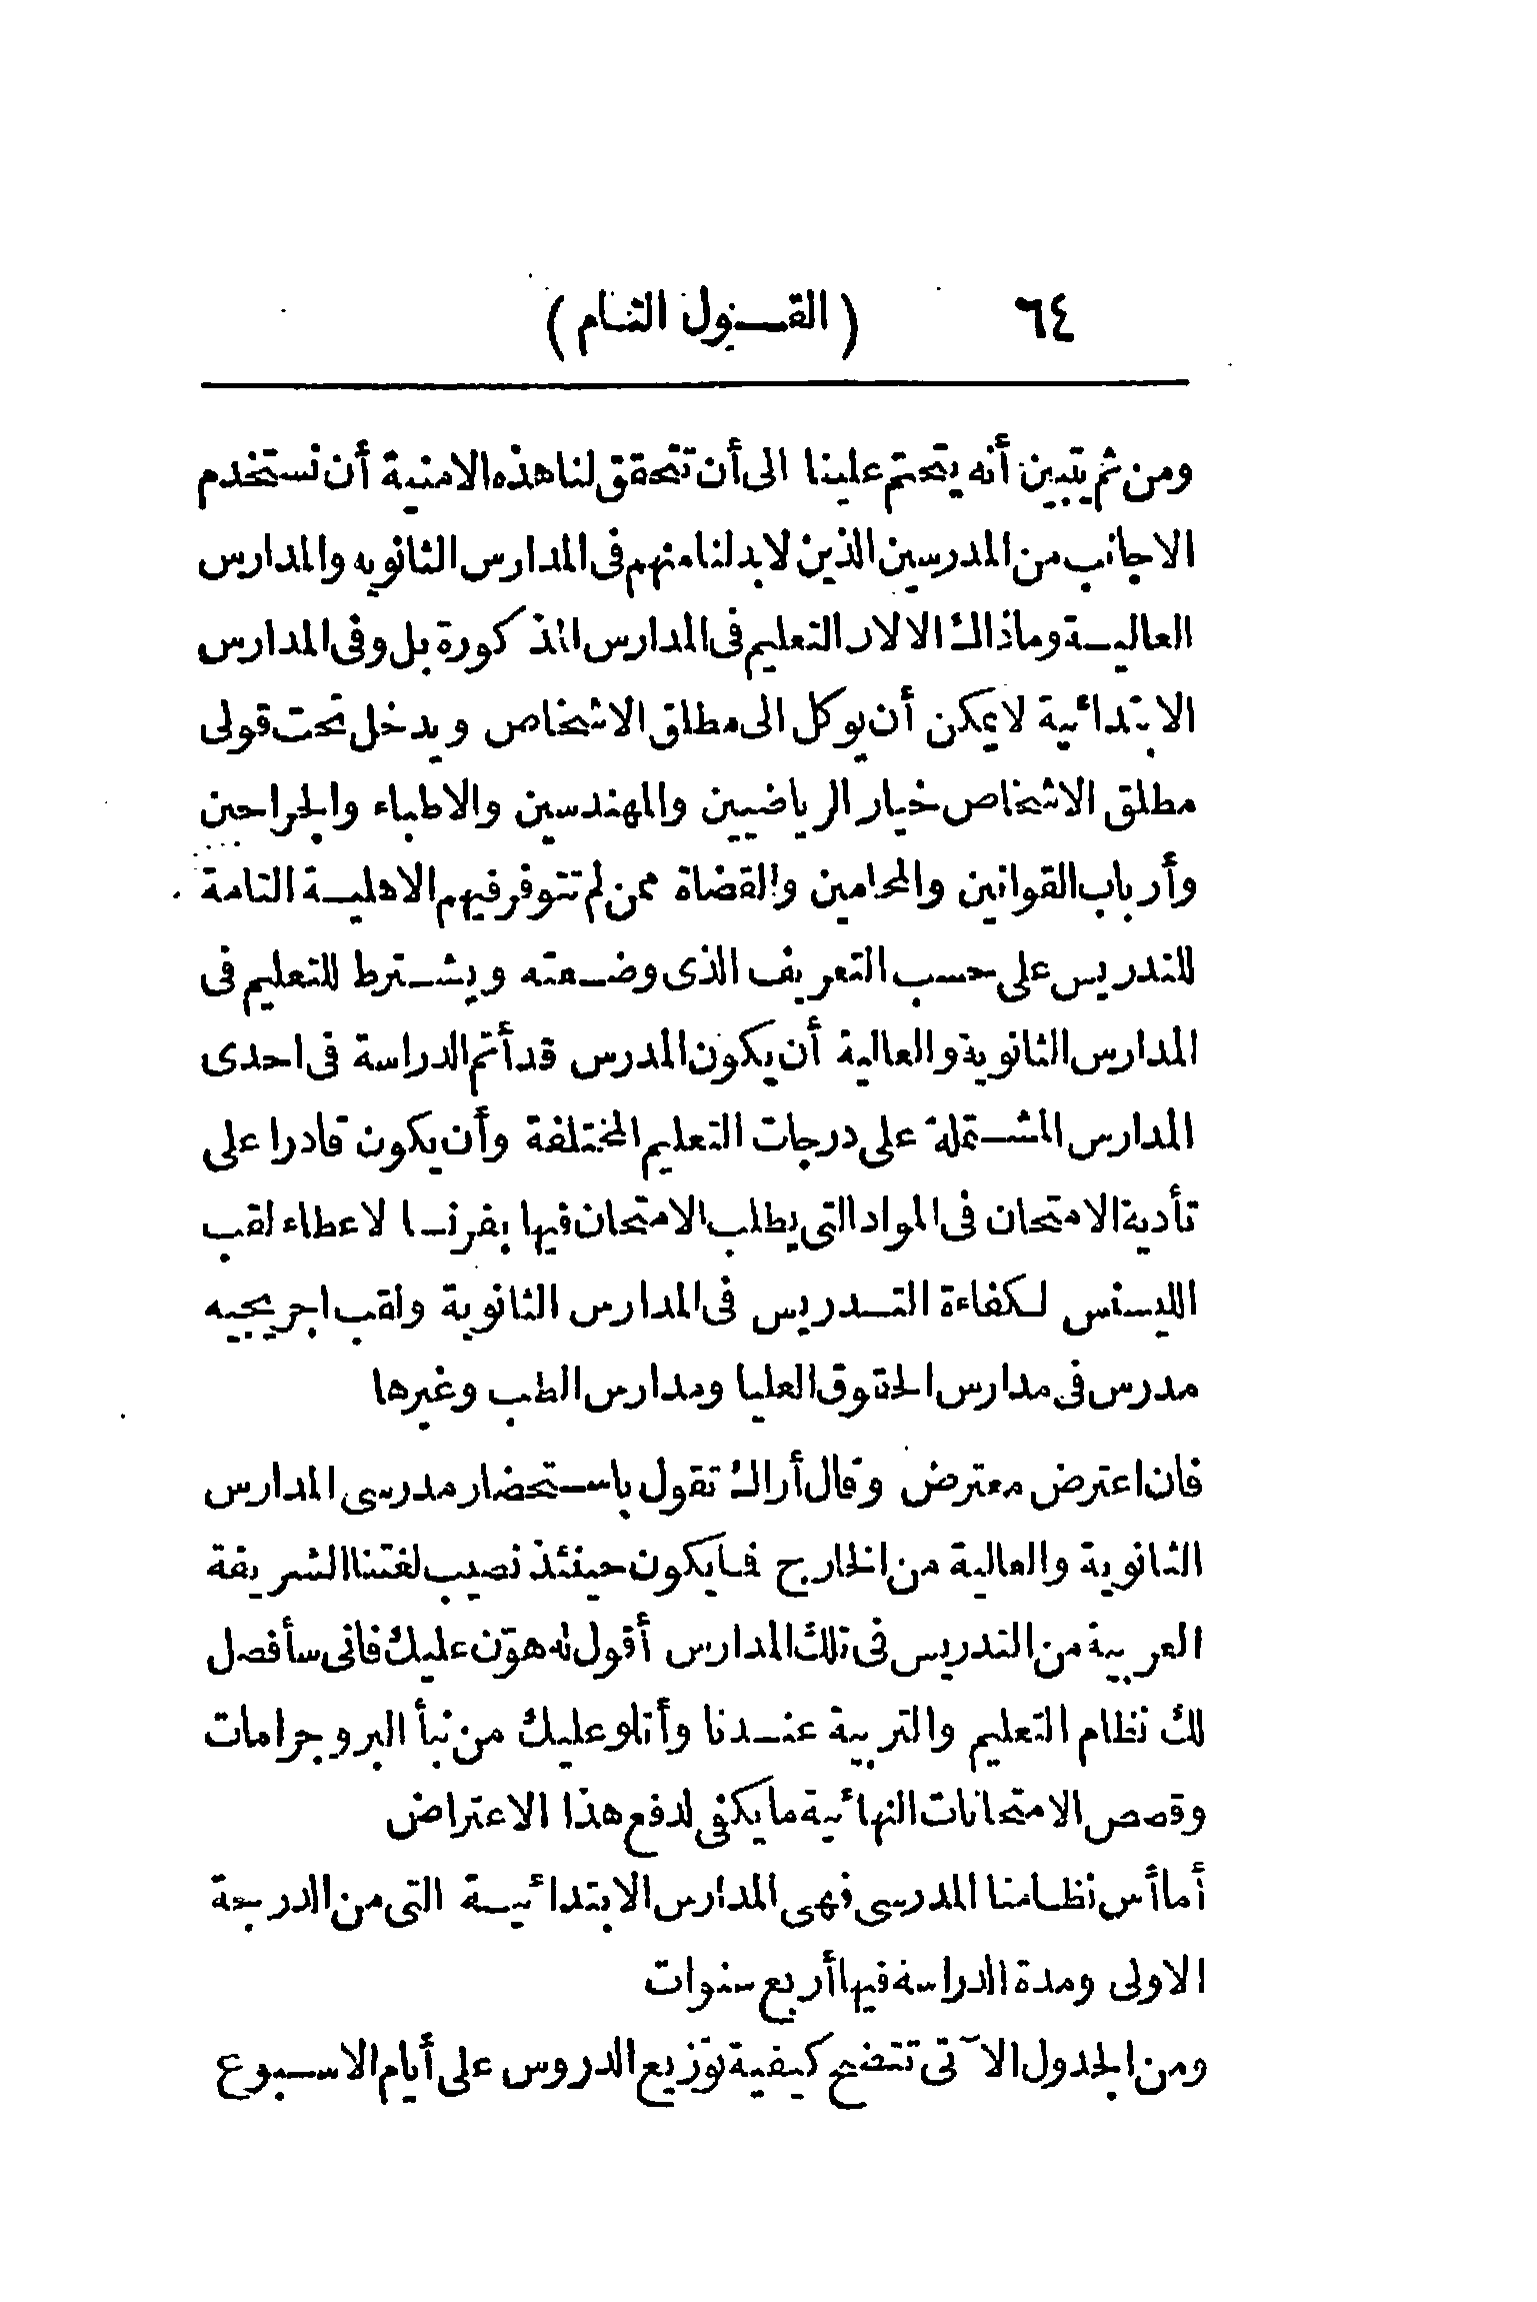 ٦٤ ( القـول التـام )
ومن ثم يتبين أنه يتحتم علينا الى أن تتحقق لنا هذه الامنية أن نستخدم
الاجانب من المدرسين الذين لابد لنا منهم فى المدارس الثانويه والمدارس
العاليـة وما ذاك الا لان التعليم فى المدارس المذكورة بل وفى المدارس
الابتدائية لا يمكن أن يوكل الى مطلق الاشخاص ويدخل تحت قولى
مطلق الاشخاص خيار الرياضيين والمهندسين والاطباء والجراحين
وأرباب القوانين والمحامين والقضاة ممن لم تتوفر فيهم الاهليـة التامة
للتدريس على حسب التعريف الذى وضـعته ويشـترط للتعليم فى
المدارس الثانوية والعالية أن يكون المدرس قد أتم الدراسة فى احدى
المدارس المشـتملة على درجات التعليم المختلفة وأن يكون قادرا على
تأدية الامتحان فى المواد التى يطلب الامتحان فيها بفرنسـا لاعطاء لقب
الليسانس لـكفاءة التـدريس فى المدارس الثانوية ولقب اجريجيه
مدرس فى مدارس الحقوق العليا ومدارس الطب وغيرها
فان اعترض معترض وقال أراك تقول باسـتحضار مدرسى المدارس
الثانوية والعالية من الخارج فـما يكون حينئذ نصيب لغتنا الشريفة
العربية من التدريس فى تلك المدارس أقول له هوّن عليك فانى سأفصل
لك نظام التعليم والتربية عنـدنا وأتلو عليك من نبأ البروجرامات
وقصص الامتحانات النهائية ما يكفى لدفع هذا الاعتراض
أما أس نظـامنا المدرسى فهى المدارس الابتدائيـة التى من الدرجة
الاولى ومدة الدراسة فيها أربع سنوات
ومن الجدول الآتى تتضح كيفية توزيع الدروس على أيام الاسـبوع